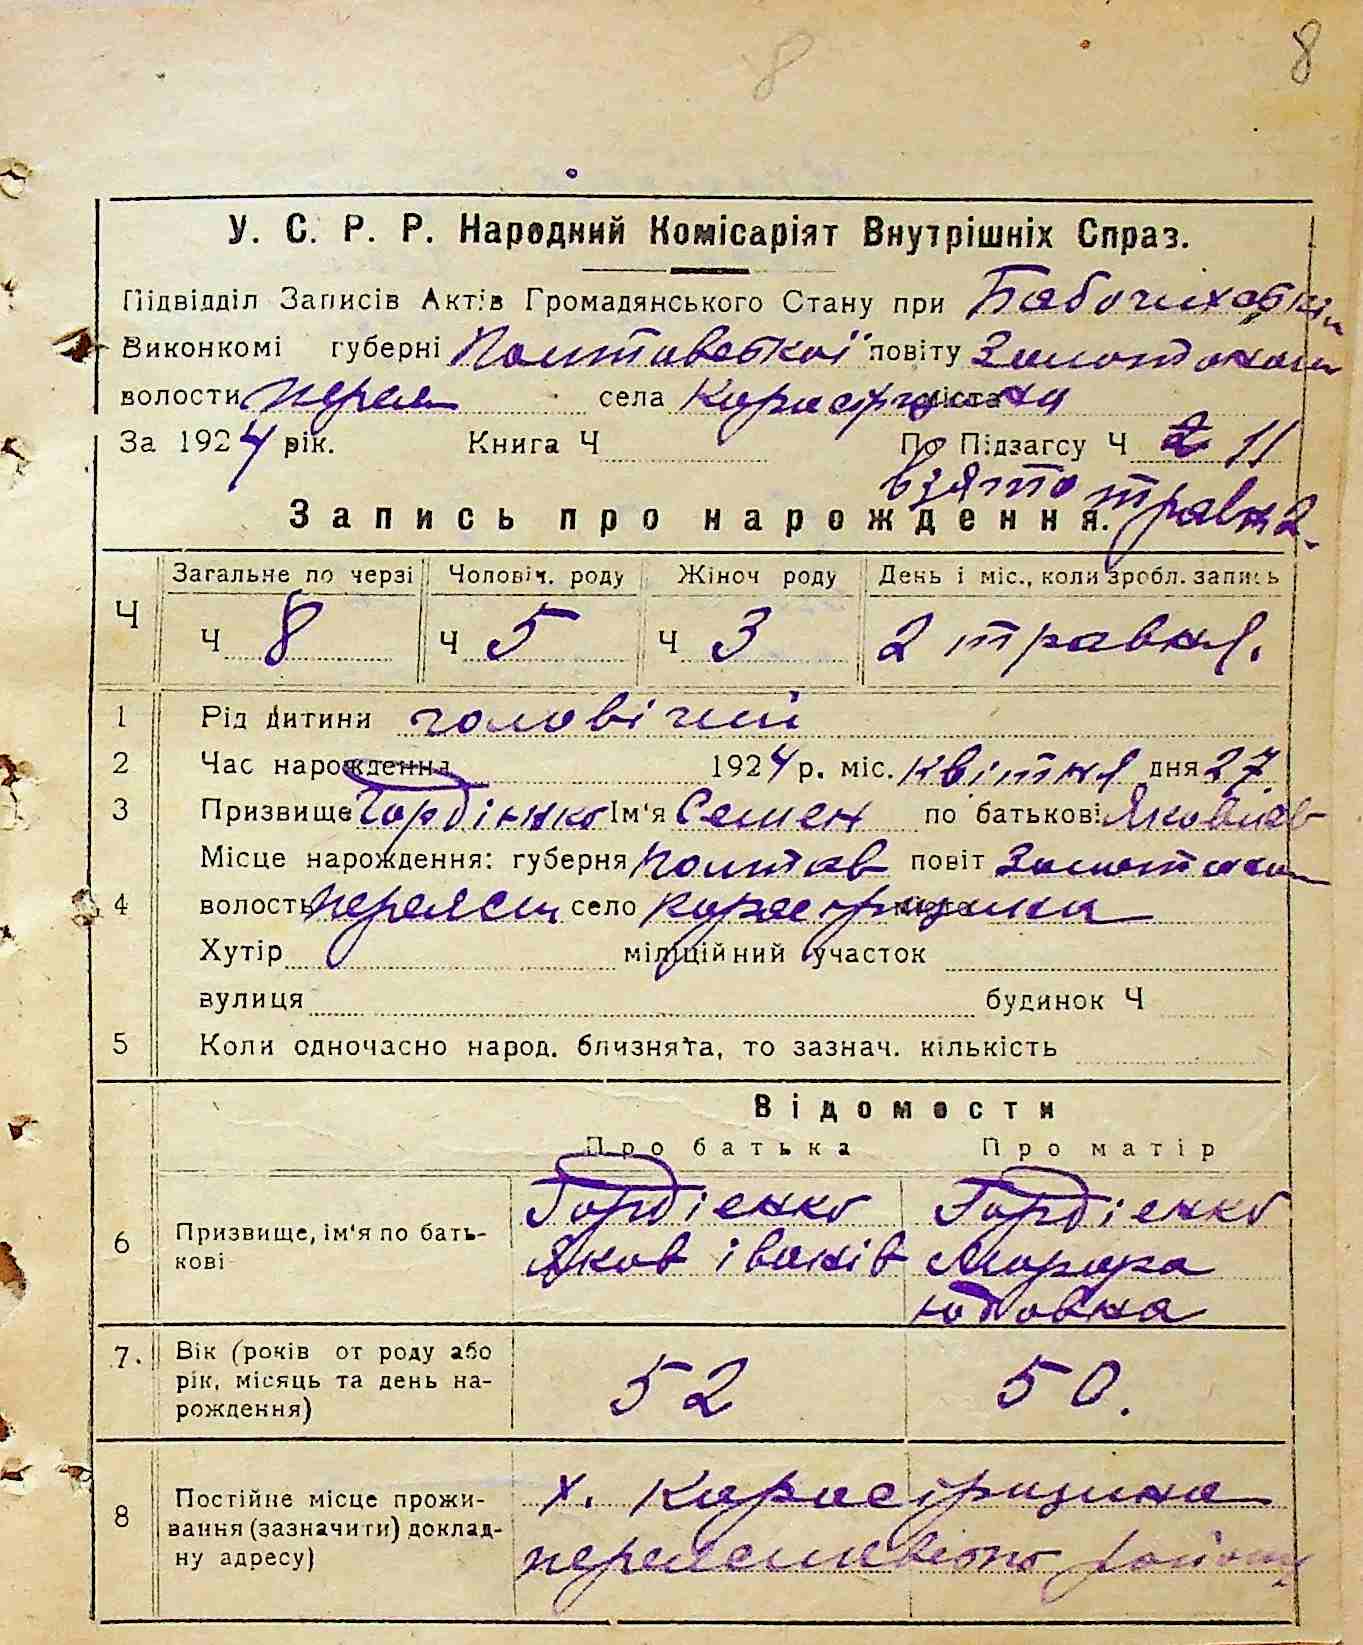 8 8
У. С. Р. Р. Народний Комісаріят Внутрішніх Справ.
Підвідділ Записів Актів Громадянського Стану при
Виконкомі губерні Полтавської повіту Золотонош
волости Перея села міста
За 1924 рік. Книга Ч По Підзагсу Ч 2 11
взято травня 2.
Запись про нарождення.
Загальне по черзі Чоловіч. роду Жіноч роду День і міс., коли зробл. запись
Ч Ч 8 Ч 5 Ч 3 2 травня.
1 Рід дитини чоловічий
2 Час нарождення 1924 р. міс. квітня дня 27
3 Призвище Гордіенко Ім'я Семен по батькові Яковлев
Місце нарождення: губерня Полтав повіт Золотонош
4 волость Переясл село місто
Хутір міліційний участок
вулиця будинок Ч
5 Коли одночасно народ. близнята, то зазнач. кількість
Відомости
Про батька Про матір
Гордіенко Гордіенко
6 Призвище, ім'я по бать-
кові
Яков іванів
7. Вік (років от роду або
рік, місяць та день на-
рождення)
52 50.
х.
8 Постійне місце прожи-
вання (зазначити) доклад-
ну адресу)
району